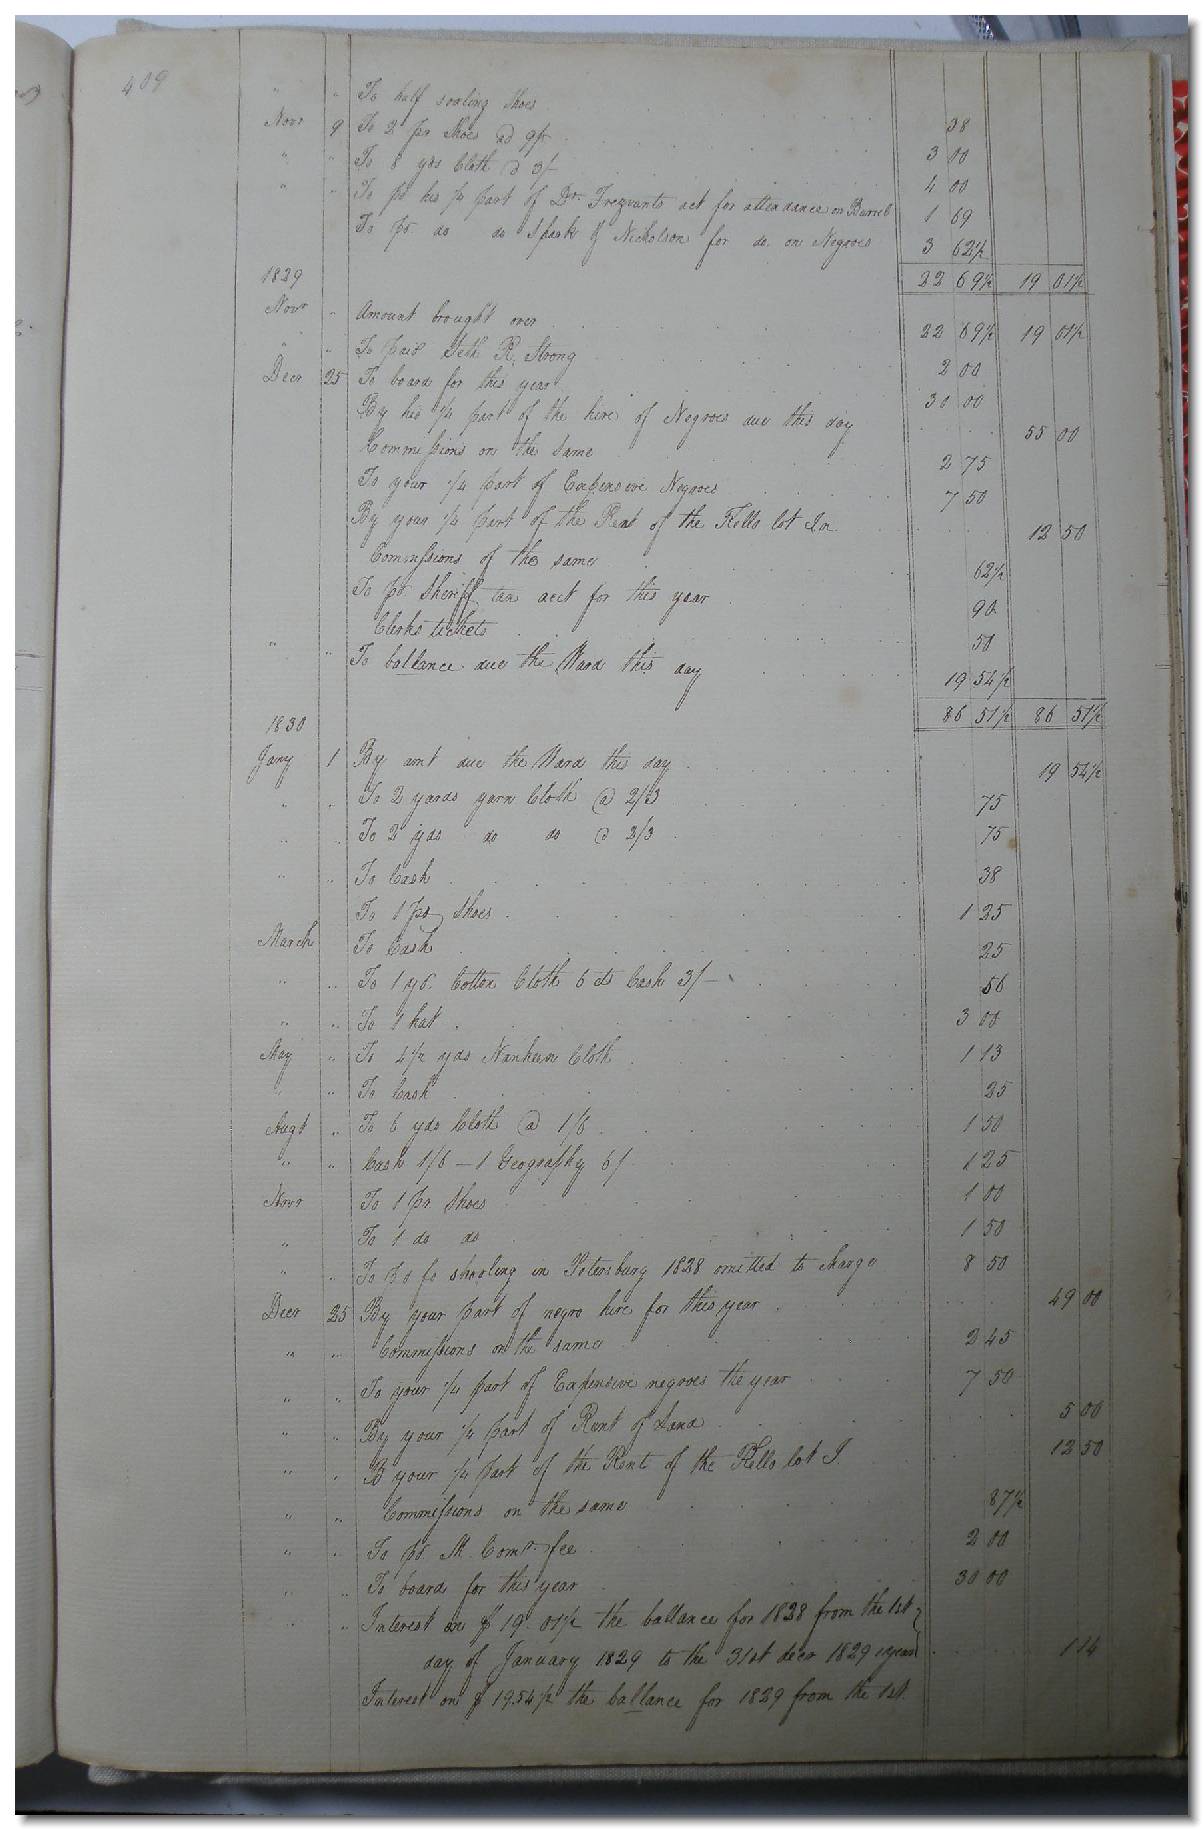 409
" " To half soaling Shoes 38
Novr 9 To 2 pr Shoes ad 9/ 3 00
" " To 8 yds Cloth @ 3/ 4 00
" " To pd his 1/4 part of Dr. Trezvants act for attendance on Barreb 1 69
To pd do do Spark & Nicholson for do on Negroes 3 62 1/2
1829 22 69 1/2 19 01 1/2
Novr " Amount brought over 22 69 1/2 19 01 1/2
" " To paid Seth R. Strong 2 00
Decr 25 To board for this year 30 00
By his 1/4 part of the hire of Negroes due this day 55 00
Commissions on the same 2 75
To your 1/4 part of Expensive Negroes 7 50
By your 1/4 part of the Rent of the Kello lot In 12 50
Commissions of the same 62 1/2
To pd Sheriff tax acct for this year 90
Clerks tickets 50
" " To ballance due the Ward this day 19 54 1/2
86 51 1/2 86 51 1/2
1830
Jany 1 By amt due the Ward this day 19 54 1/2
" " To 2 yards yarn Cloth @ 2/3 75
" " To 2 yds do do @ 2/3 75
" " To Cash 38
To 1 pr Shoes 1 25
March To Cash 25
" " To 1 yd. Cotton Cloth 6 cts Cash 3/- 56
" " To 1 hat 3 00
May " To 4 1/2 yds Nankeen Cloth 1 13
" " To Cash 25
Augt " To 6 yds Cloth @ 1/6 1 50
" " Cash 1/6 - 1 Geography 6/ 1 25
Novr To 1 pr Shoes 1 00
" To 1 do do 1 50
" " To pd fo shooling in Petersburg 1828 omitted to charge 8 50
Decr 25 By your part of negro hire for this year 49 00
" " Commissions on the same 2 45
" " To your 1/4 part of Expensive negroes the year 7 50
" " By your 1/4 part of Rent of Land 5 00
" " B your 1/4 part of the Rent of the Kello lot I. 12 50
" " Commissions on the same 87 1/2
" " To pd. M. Comr. fee 2 00
" " To board for this year 30 00
" " Interest on $ 19. 01 1/2 the ballance for 1828 from the 1st
day of January 1829 to the 31st decr 1829 1 year 1 14
Interest on $ 19.54 1/2 the ballance for 1829 from the 1st.